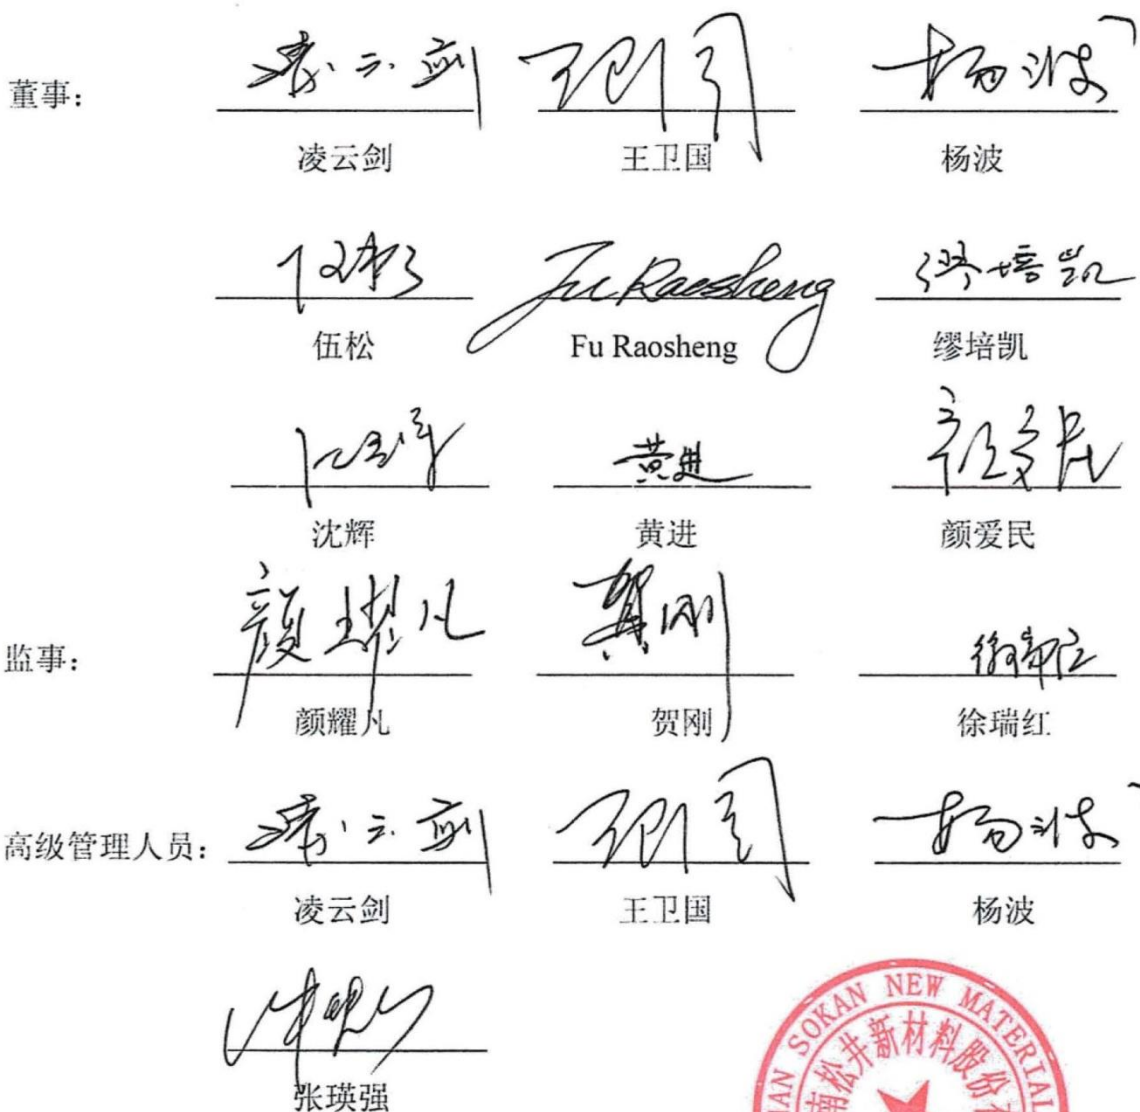 董事:
凌云剑 王卫国 杨波
伍松 Fu Raosheng 缪培凯
沈辉 黄进 颜爱民
监事:
颜耀凡 贺刚 徐瑞红
高级管理人员:
凌云剑 王卫国 杨波
张瑛强
SOKAN NEW MATERIAL
南松井新材料股份